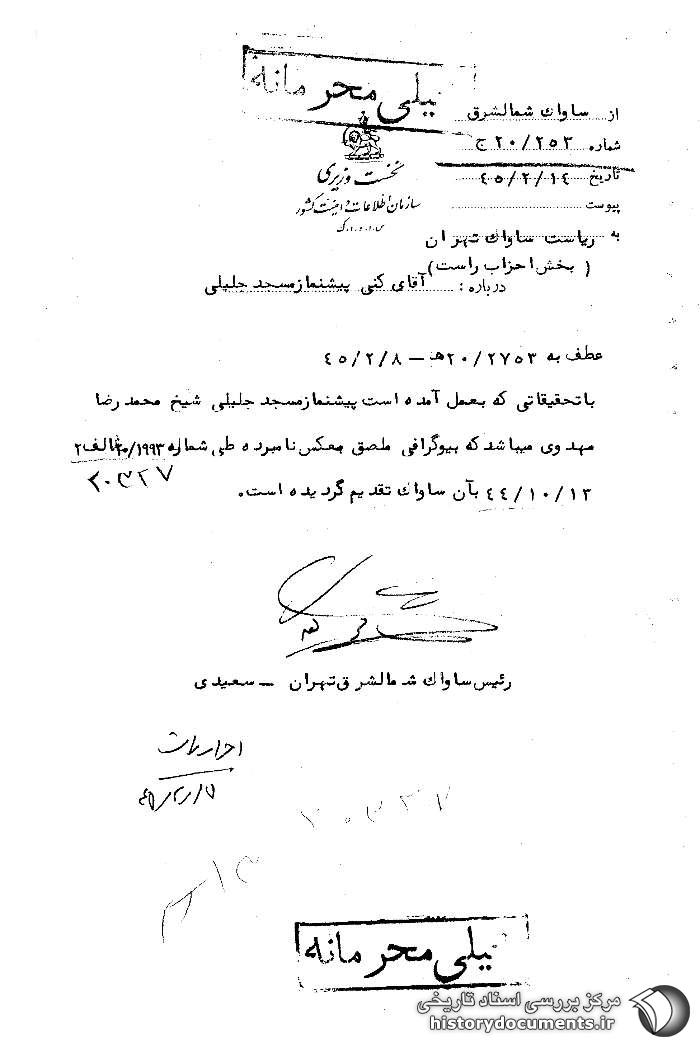 خیلی محرمانه
از ساواك شمالشرق
شماره ۲۰/۲۵۳ ج
تاریخ ۴۵/۲/۱۴
پیوست
نخست وزیری
سازمان اطلاعات و امنیت کشور
س.ا.و.ا.ک
به ریاست ساواك تهران
( بخش احزاب راست)
درباره : آقای کنی پیشنماز مسجد جلیلی
عطف به ۲۰/۲۷۵۳هـ – ۴۵/۲/۸
با تحقیقاتی که بعمل آمده است پیشنماز مسجد جلیلی شیخ محمد رضا
مهدوی میباشد که بیوگرافی ملصق بعکس نامبرده طی شماره ۲۰/۱۹۹۳۰ الف۲
۲۰۳۲۷
۴۴/۱۰/۱۳ بآن ساواك تقدیم گردیده است.
رئیس ساواك شمالشرق تهران – سعیدی
۴۵/۲/۱۷
۲۰۳۲۷
خیلی محرمانه
مرکز بررسی اسناد تاریخی
historydocuments.ir